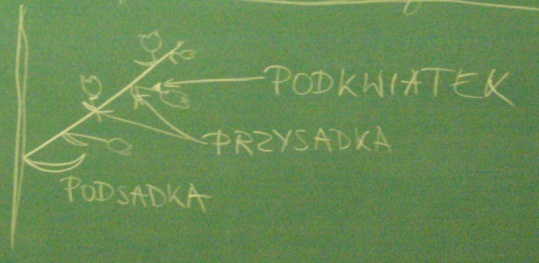 PODKWIATEK
PRZYSADKA
PODSADKA